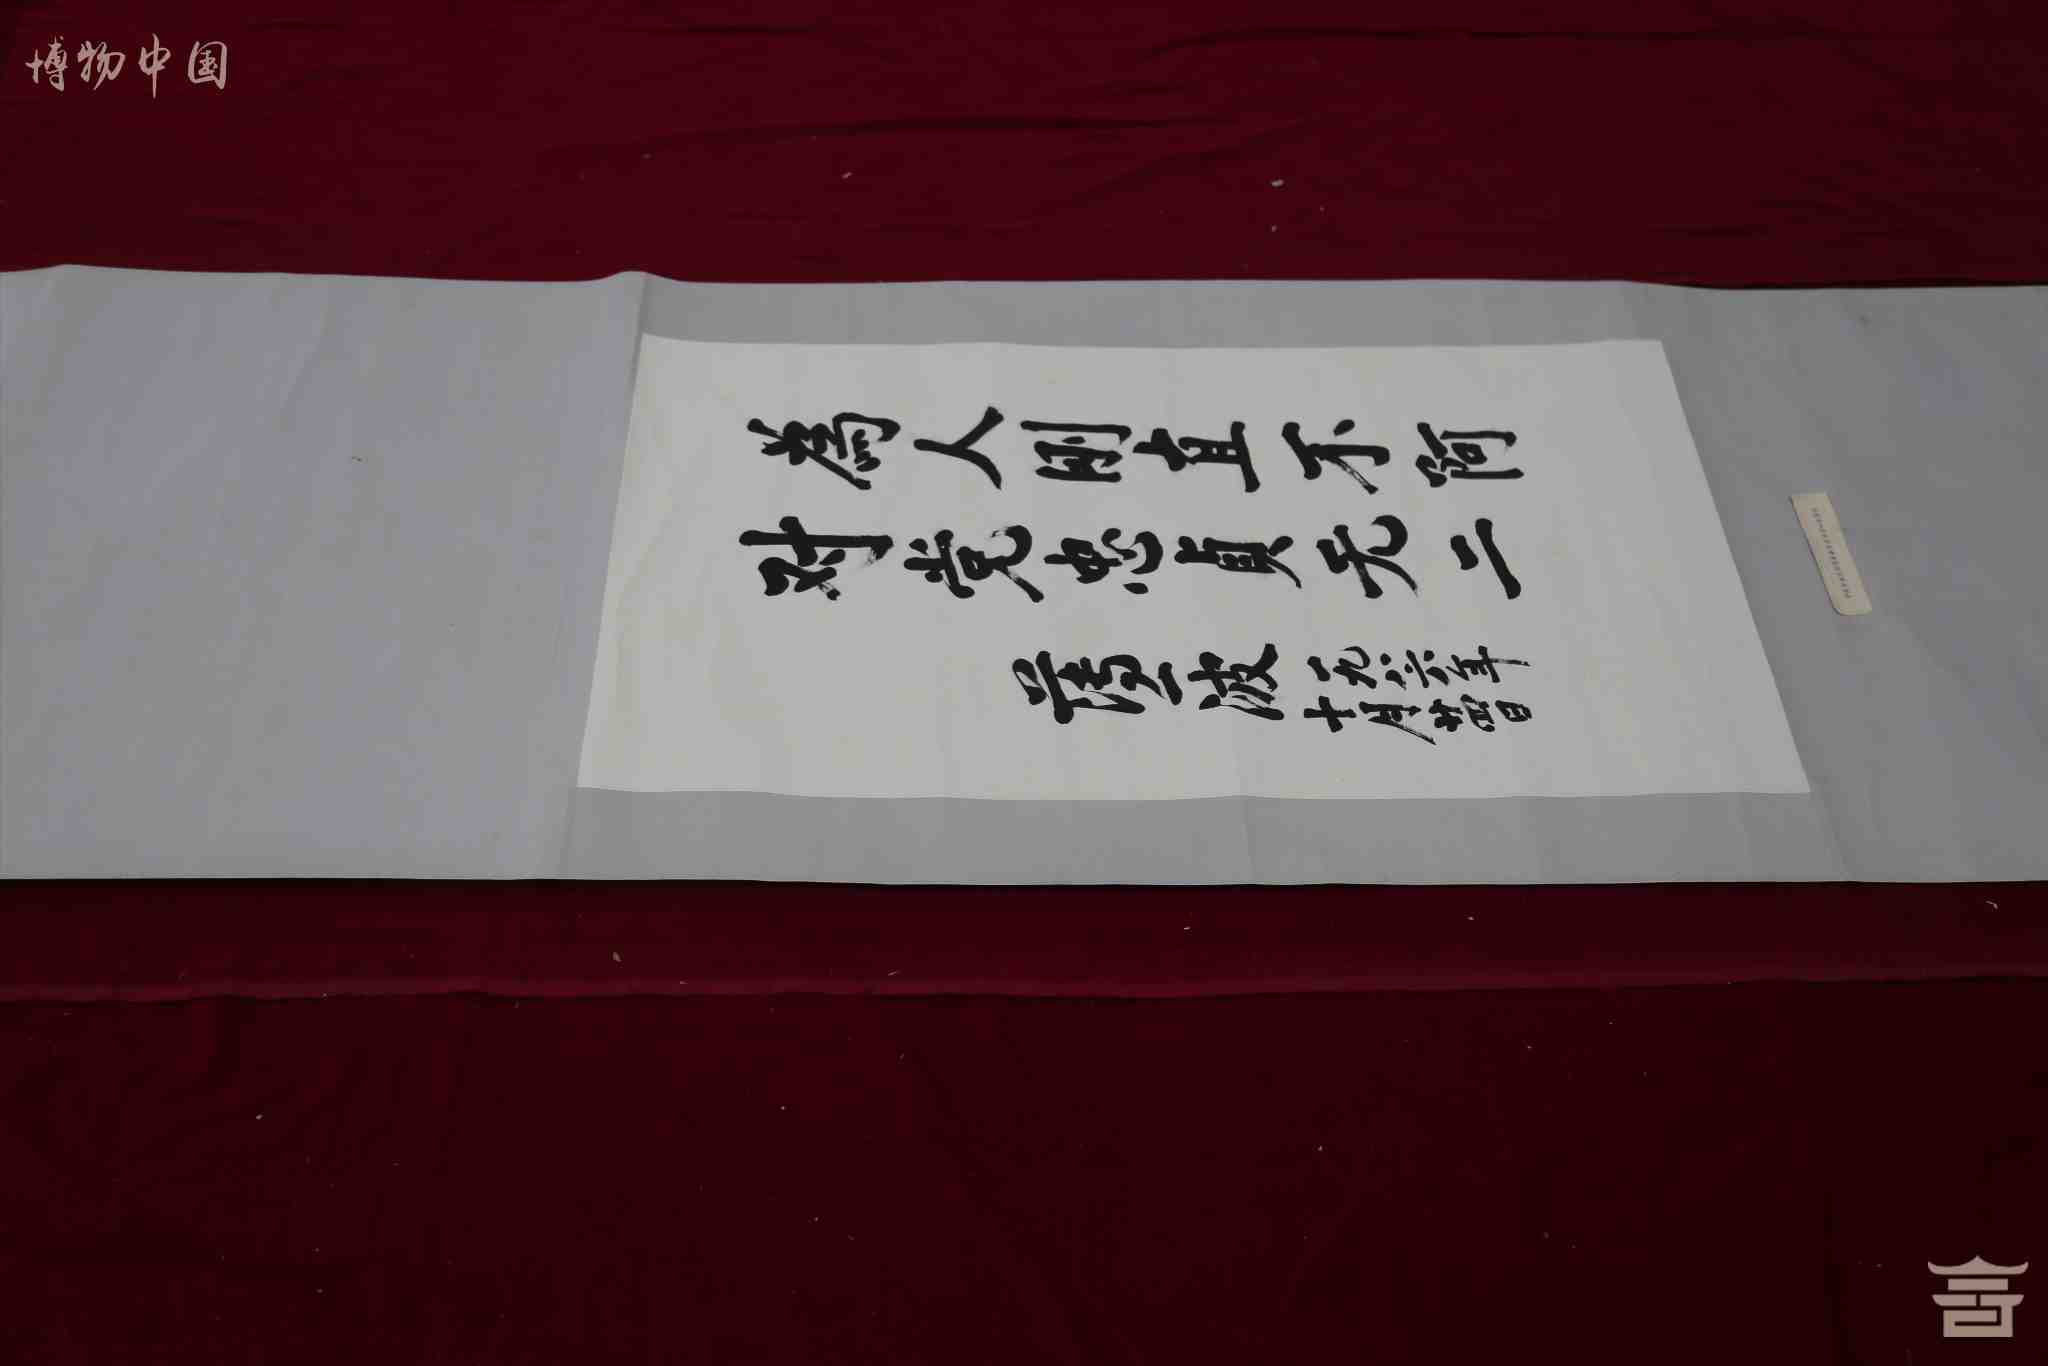 博物中国
為人刚直不阿
对党忠貞无二
薄一波
一九八六年
十月廿四日